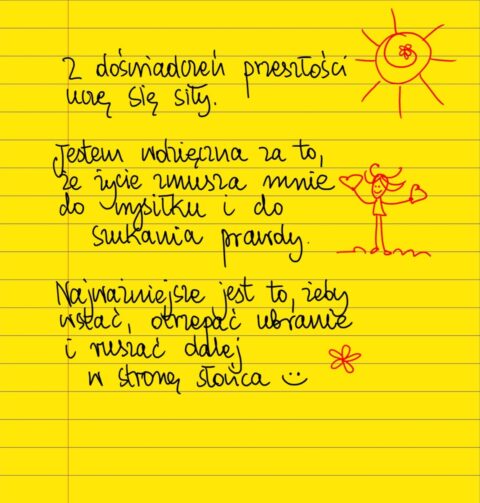 Z doświadczeń przeszłości
uczę się siły.
Jestem wdzięczna za to,
że życie zmusza mnie
do wysiłku i do
szukania prawdy.
Najważniejsze jest to, żeby
wstać, otrzepać ubranie
i ruszać dalej
w stronę słońca ☺